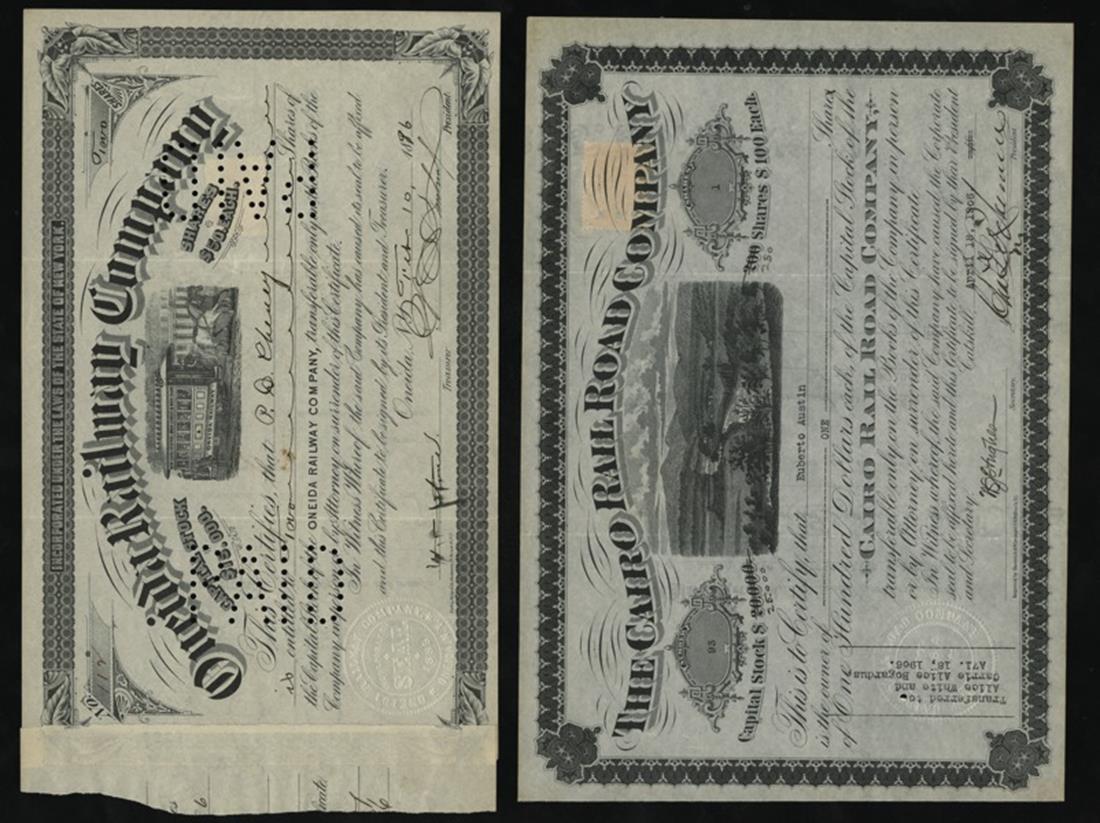 INCORPORATED UNDER THE LAWS OF THE STATE OF NEW YORK.
No. 117
Two
SHARES
Oneida Railway Company
CAPITAL STOCK
$15,000.
SHARES
$50 EACH.
This Certifies, that P. B. Cheney
is entitled to Two Shares of
the Capital Stock of the ONEIDA RAILWAY COMPANY, transferable only on the Books of the
Company in person or by Attorney on surrender of this Certificate.
In Witness Whereof the said Company has caused its seal to be affixed
and this Certificate to be signed by its President and Treasurer.
Oneida, Oct 10 1896
Treasurer
President.
SEAL
THE CAIRO RAIL ROAD COMPANY
93
1
Capital Stock $ 20,000
25000
200 Shares $ 100 Each.
250
This is to Certify, that Huberto Austin
is the owner of ONE Shares
of One Hundred Dollars each, of the Capital Stock of the
CAIRO RAIL ROAD COMPANY,
transferable only on the Books of the Company in person
or by Attorney, on surrender of this Certificate
In Witness whereof, the said Company have caused the Corporate
seal to be affixed hereto and this Certificate to be signed by their President
and Secretary Catskill, April 18, 1905
Secretary.
President
Transferred to,
Alice White and
Carrie Alice Bogardus
A71. 18, 1906.